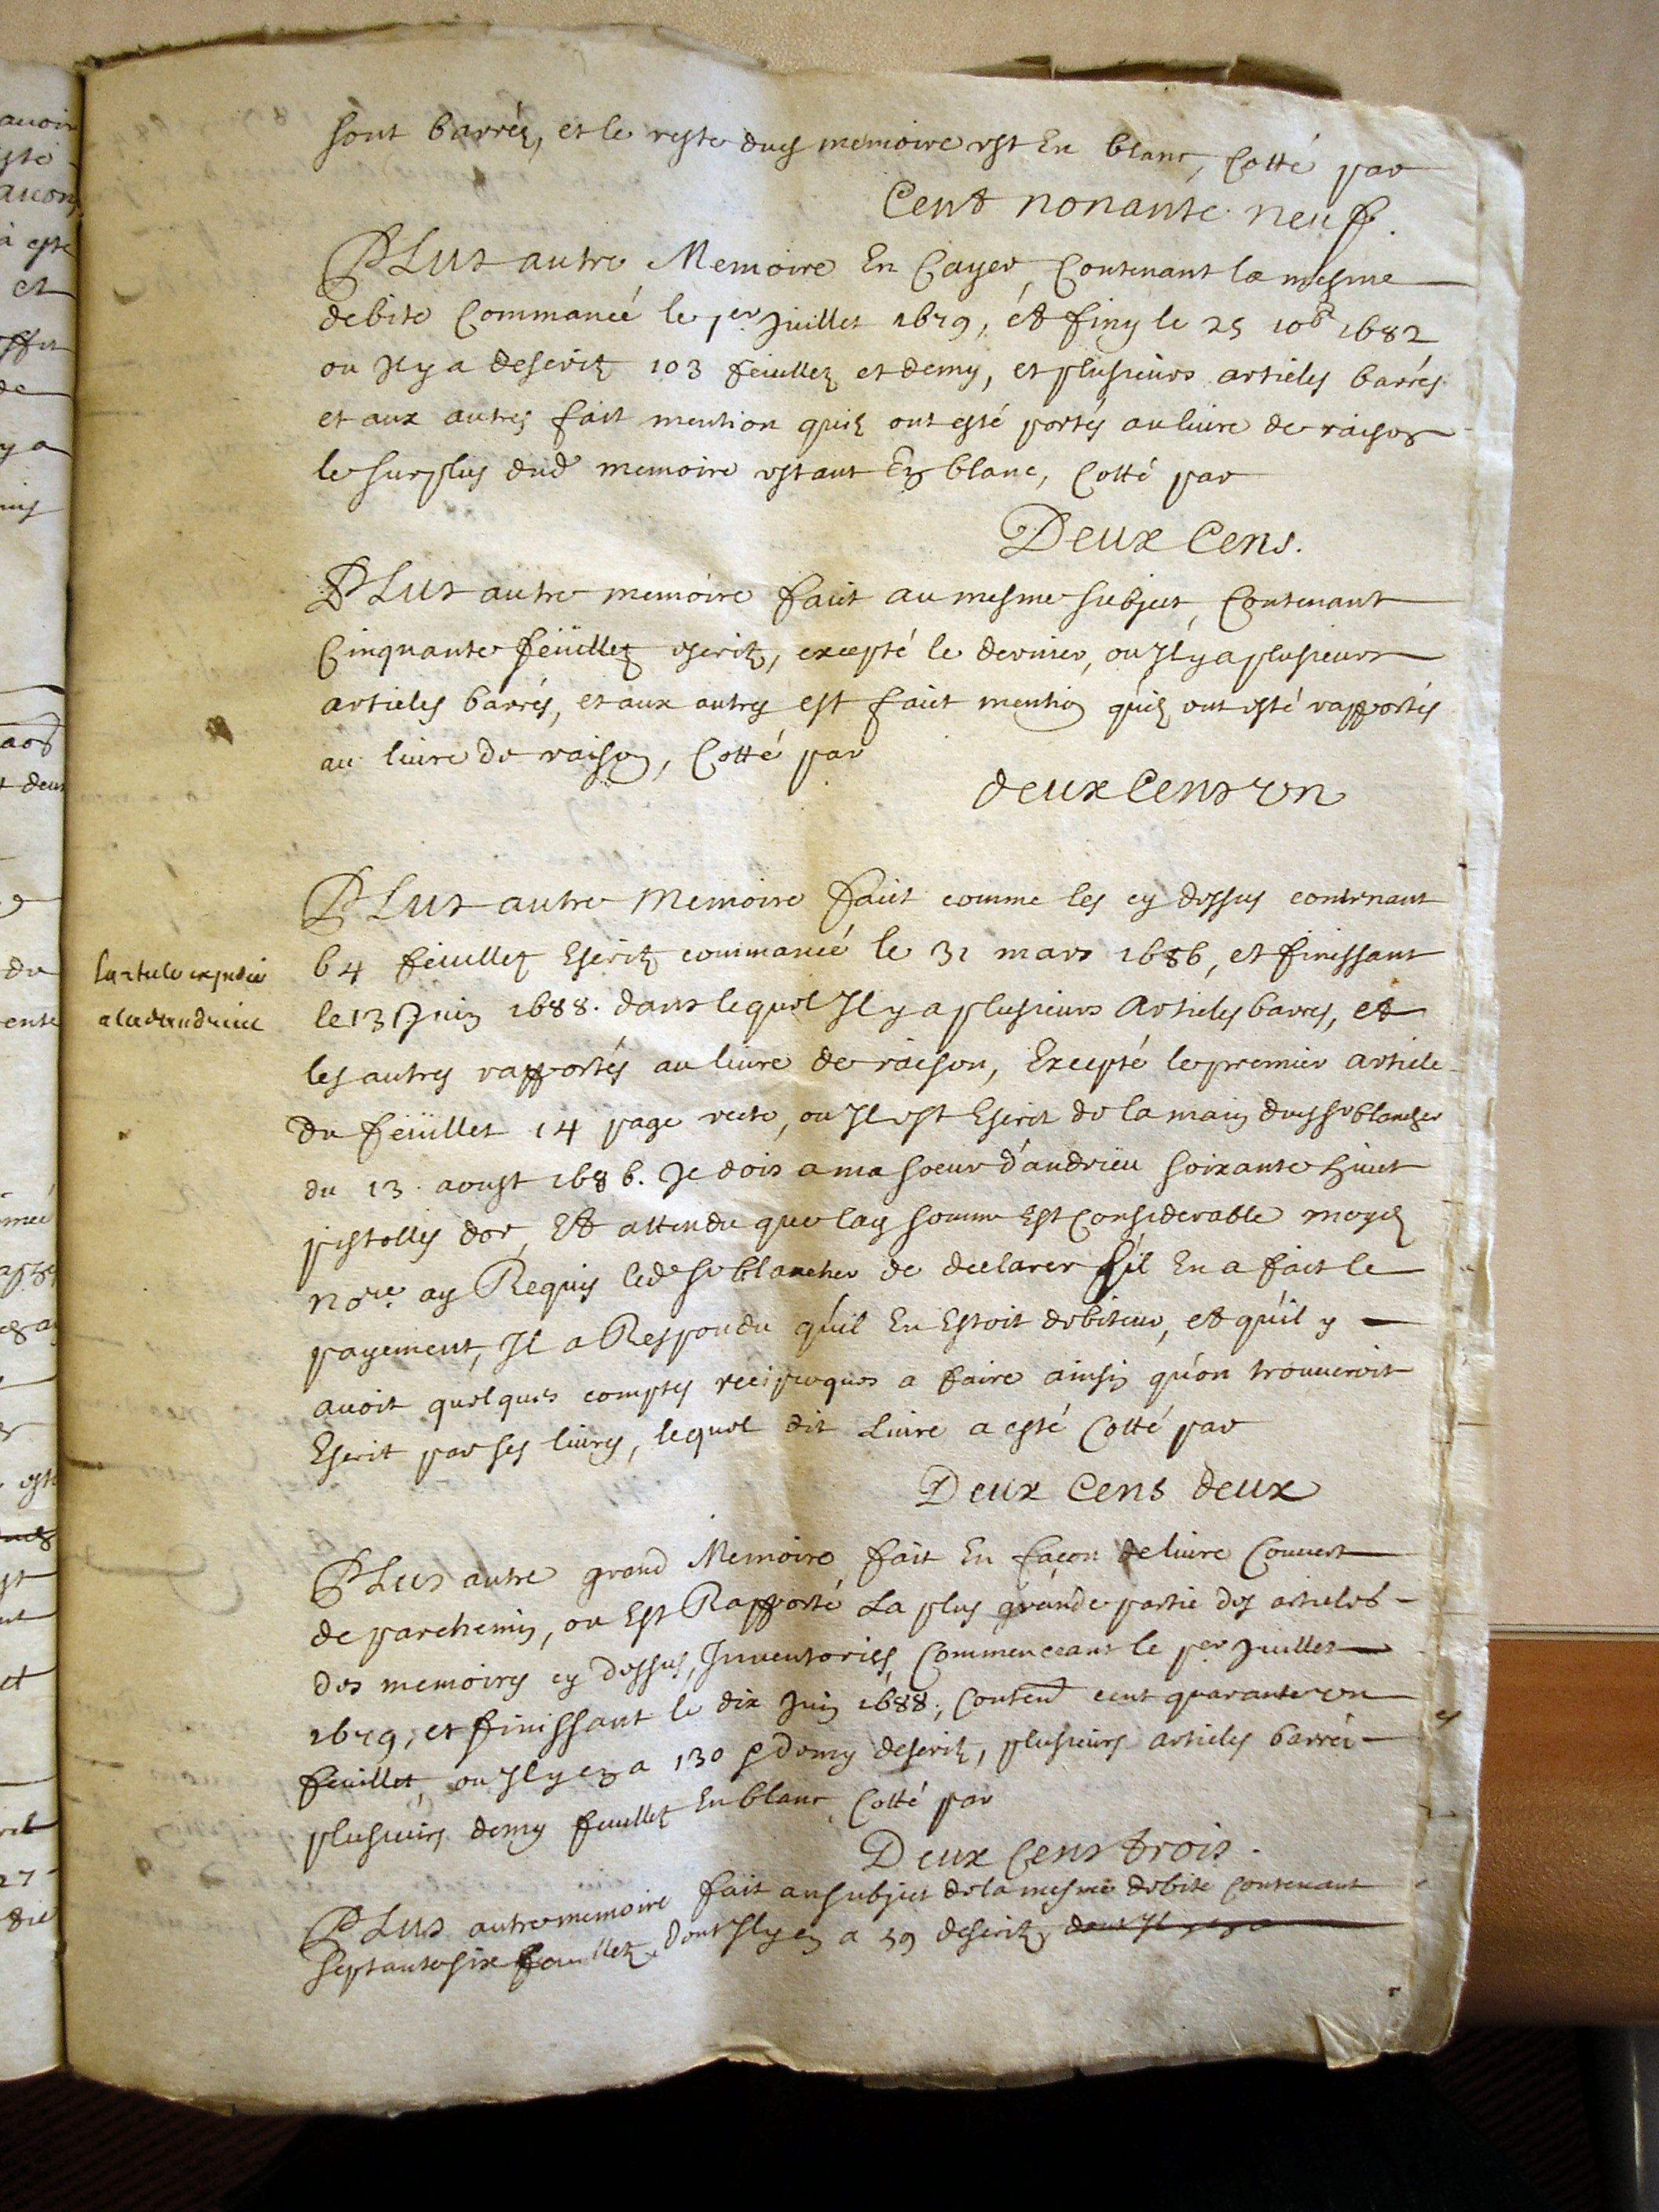 sont barrés, et le reste dug memoire est En blanc, Cotté par
Cent nonante neuf.
PLus autre Memoire En Cayer, Contenant la mesme
debite Commancé le per Juillet 1679, et finy le 25 10bre 1682
ou Il y a descritz 103 feuilletz et demy, et plusieurs articles barrés
et aux autres fait mention quilz ont esté portés au livre de raison
le surplus dud memoire estant En blanc, Cotté par
Deux Cens.
PLus autre memoire faict au mesme subject, Contenant
Cinquante feüilletz escritz, excepté le dernier, ou Il y a plusieurs
articles barrés, et aux autres est faict mention quilz ont esté rapportés
au livre de raison, Cotté par
deux Cens Un
PLus autre Memoire faict comme les cy dessus contenant
64 feuilletz Escritz commancé le 31 mars 1686, et finissant
le 13 Juin 1688. dans lequel Il y a plusieurs Articles barres, et
les autres rapportés au livre de raison, Excepté le premier article
du feüillet 14 page recto, ou Il est Escrit de la main dug sr blancher
du 13 aoust 1686. Je dois a ma soeur d'andrieu soixante huict
pistolles dor, Et attendu que lag somme Est Considerable moyd
nore. ay Requis led sr blancher de declarer s'il En a fait le
payement, Il a Respondu qu'il En Estoit debiteur, et qu'il y
avoit quelques comptes reciproques a faire ainsin qu'on trouveroit
Escrit par ses livres, lequel dit Livre a esté Cotté par
Deux Cens deux
PLus autre grand Memoire fait En façon de livre Couvert
de parchemin, ou Est Rapporté La plus grande partie des articles
des memoires cy dessus, Inventoriés, Commenceant le per Juillet
1679, et finissant le dix Juin 1688, Contend cent quarante un
feuillet, ou Il y en a 130 e demy descritz, plusieurs articles barrés
plusieurs demy feuilletz En blanc Cotté par
Deux Cens trois.
PLus autre memoire fait au subject de la mesme debite Contenant
septante six feuilletz, dont Il y en a 59 descritz, dont Il y en a